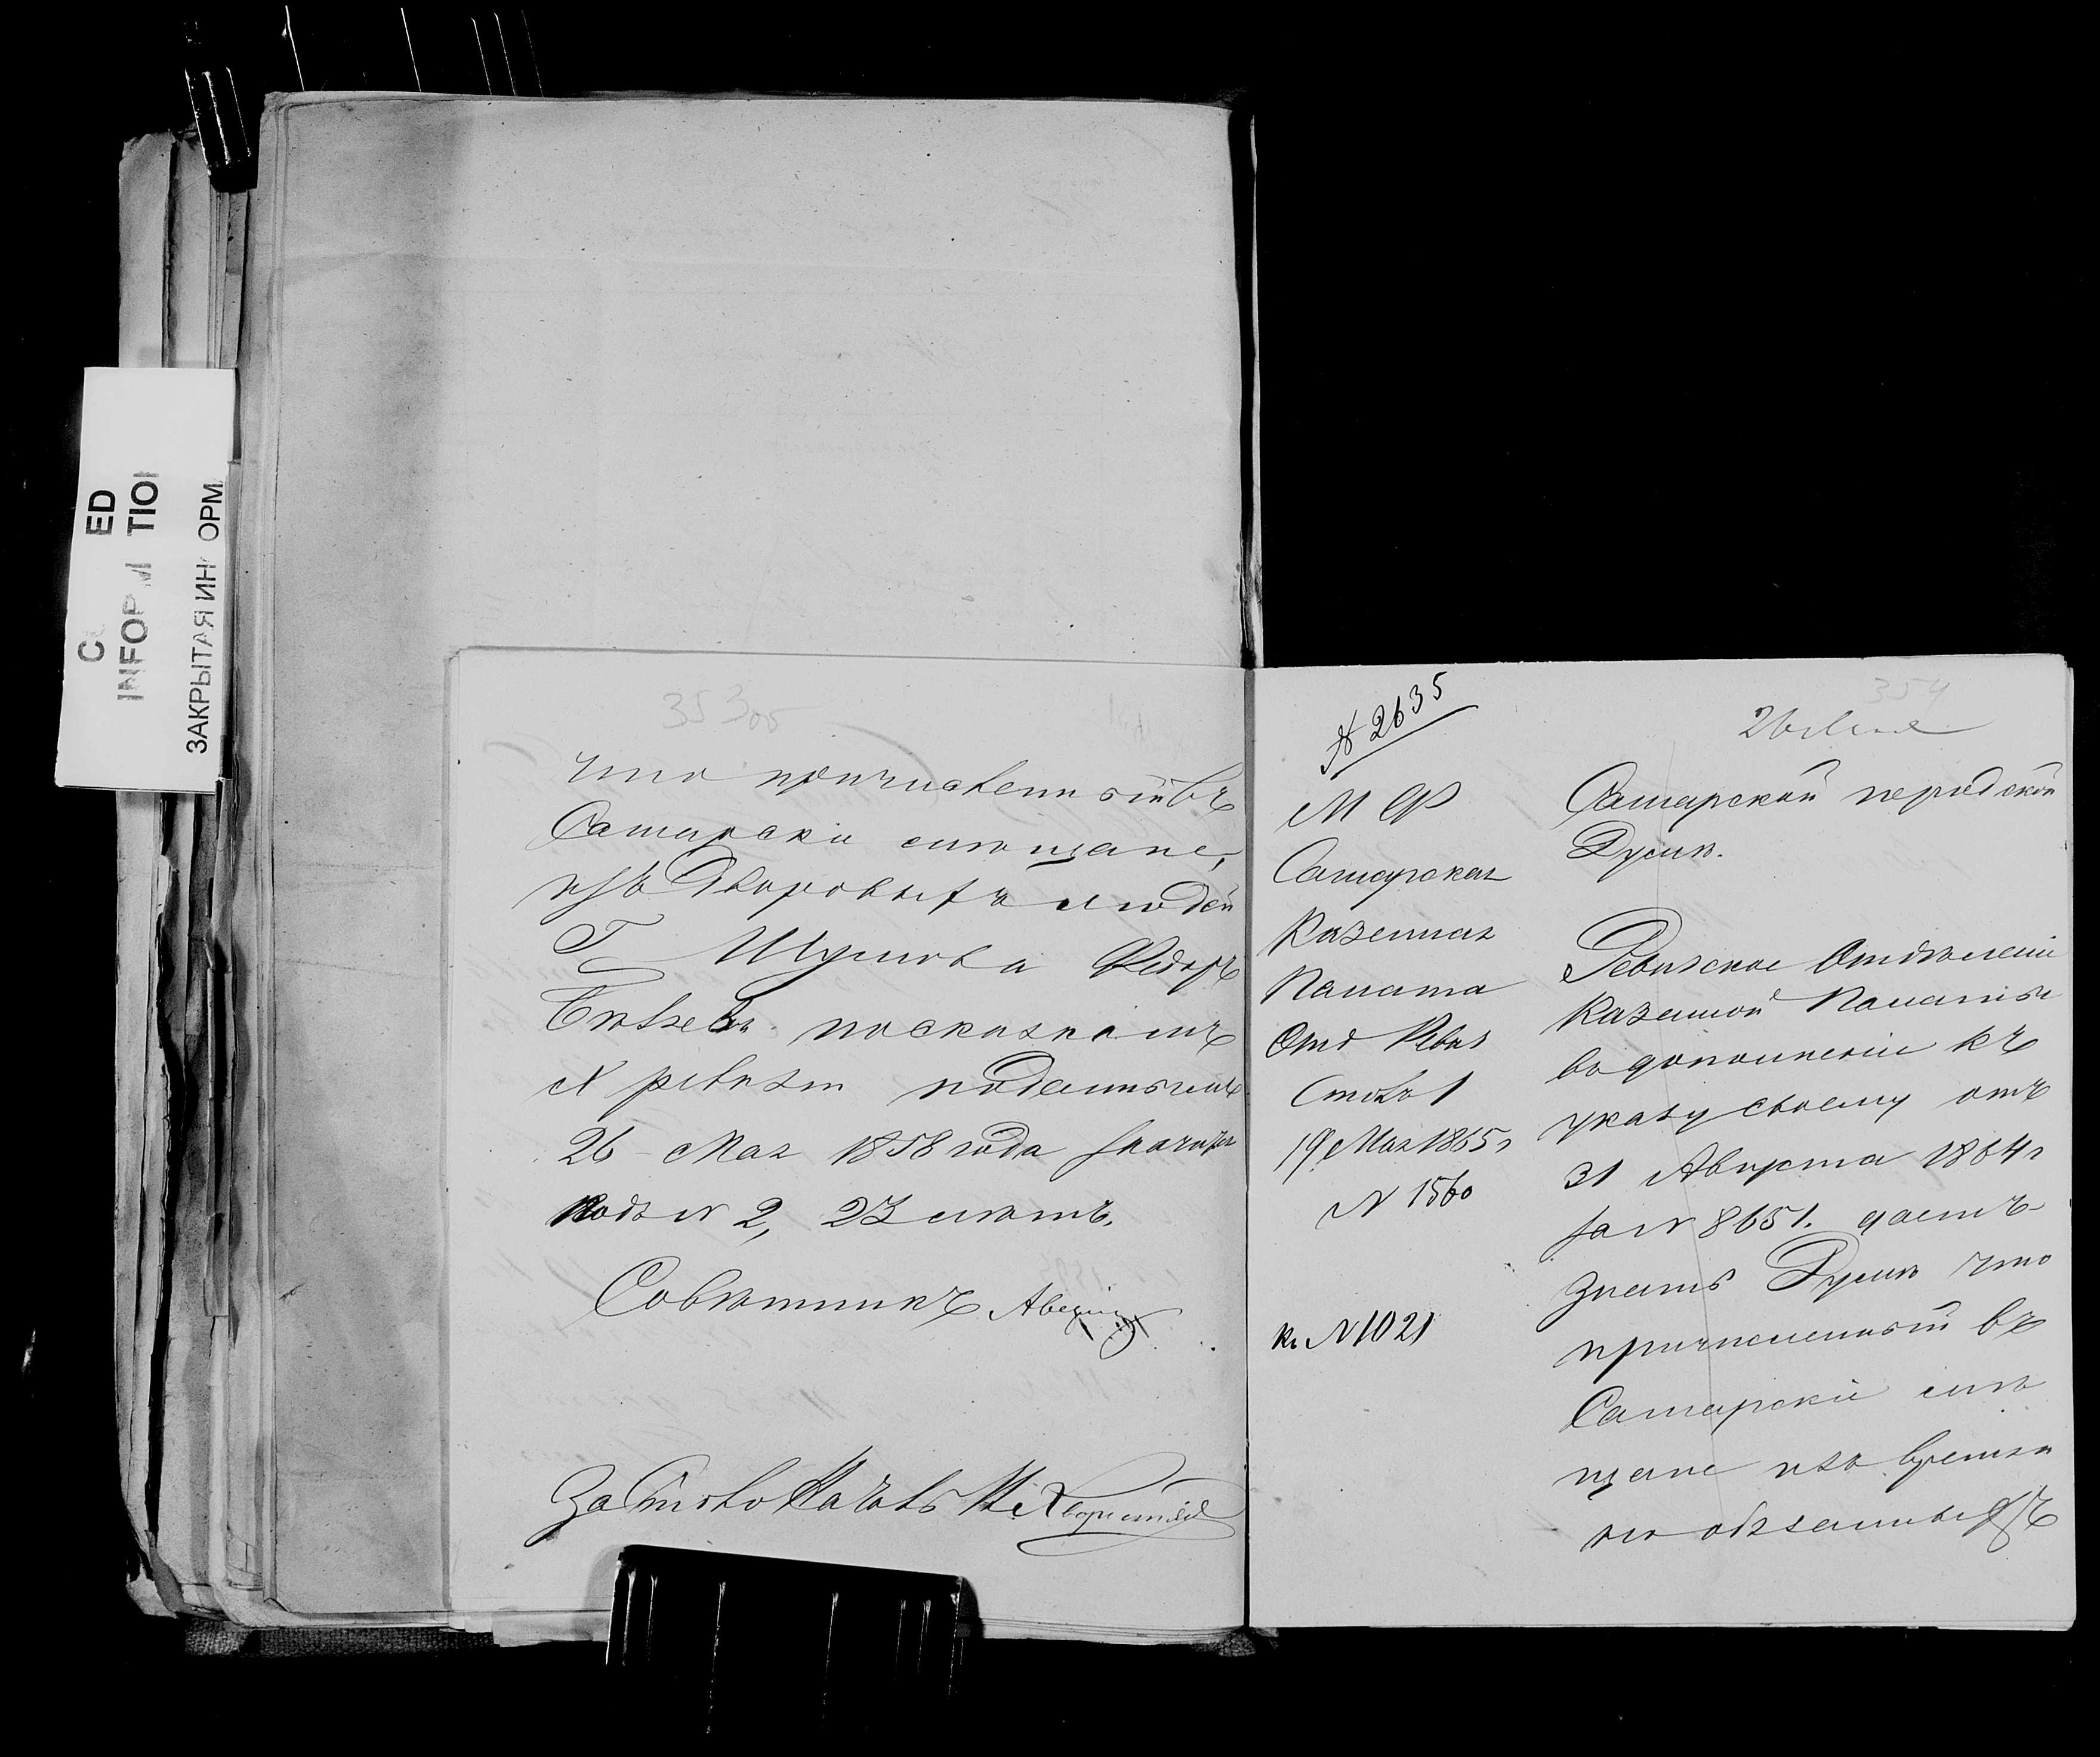 ED
TIO
C
INFOР М
ЗАКРЫТАЯ ИН ОРМ
353 об
что причисленный въ
Самарскіе мѣщане,
изъ Дворовыхъ людей
Г Шушова Федоръ
посказкамъ
X ревизіи поданнымъ
26 Мая 1858 года
подъ N 2, 23 лѣтъ.
Совѣтникъ
За Столо Начал
N 2635
М Ф
Самарская
Казенная
Палата
Отд Ревиз
Столъ 1
19 Мая 1865 г
N 1560
к N 1021
354
26 Мая
Самарской городской
Думѣ.
Ревизское Отдѣленіе
Казенной Палаты
въ дополненіе къ
указу своему отъ
31 Августа 1864 г
за N 8651. даетъ
знать Думѣ что
причисленный въ
Самарскіе мѣ
щане изъ времен
но обязанныхъ